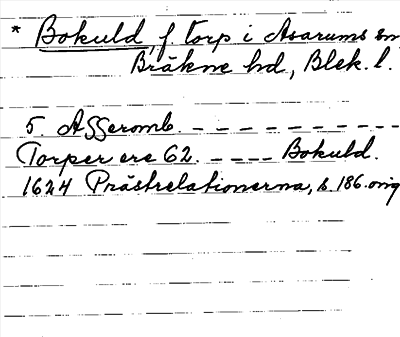 * Bokuld, f. torp i Asarums sn
Bräkne hd., Blek. l.
5. Aggeromb. – – – – – – – – – –
Torper ere 62. – – – – Bokuld.
1624 Prästrelationerna, s. 186. orig